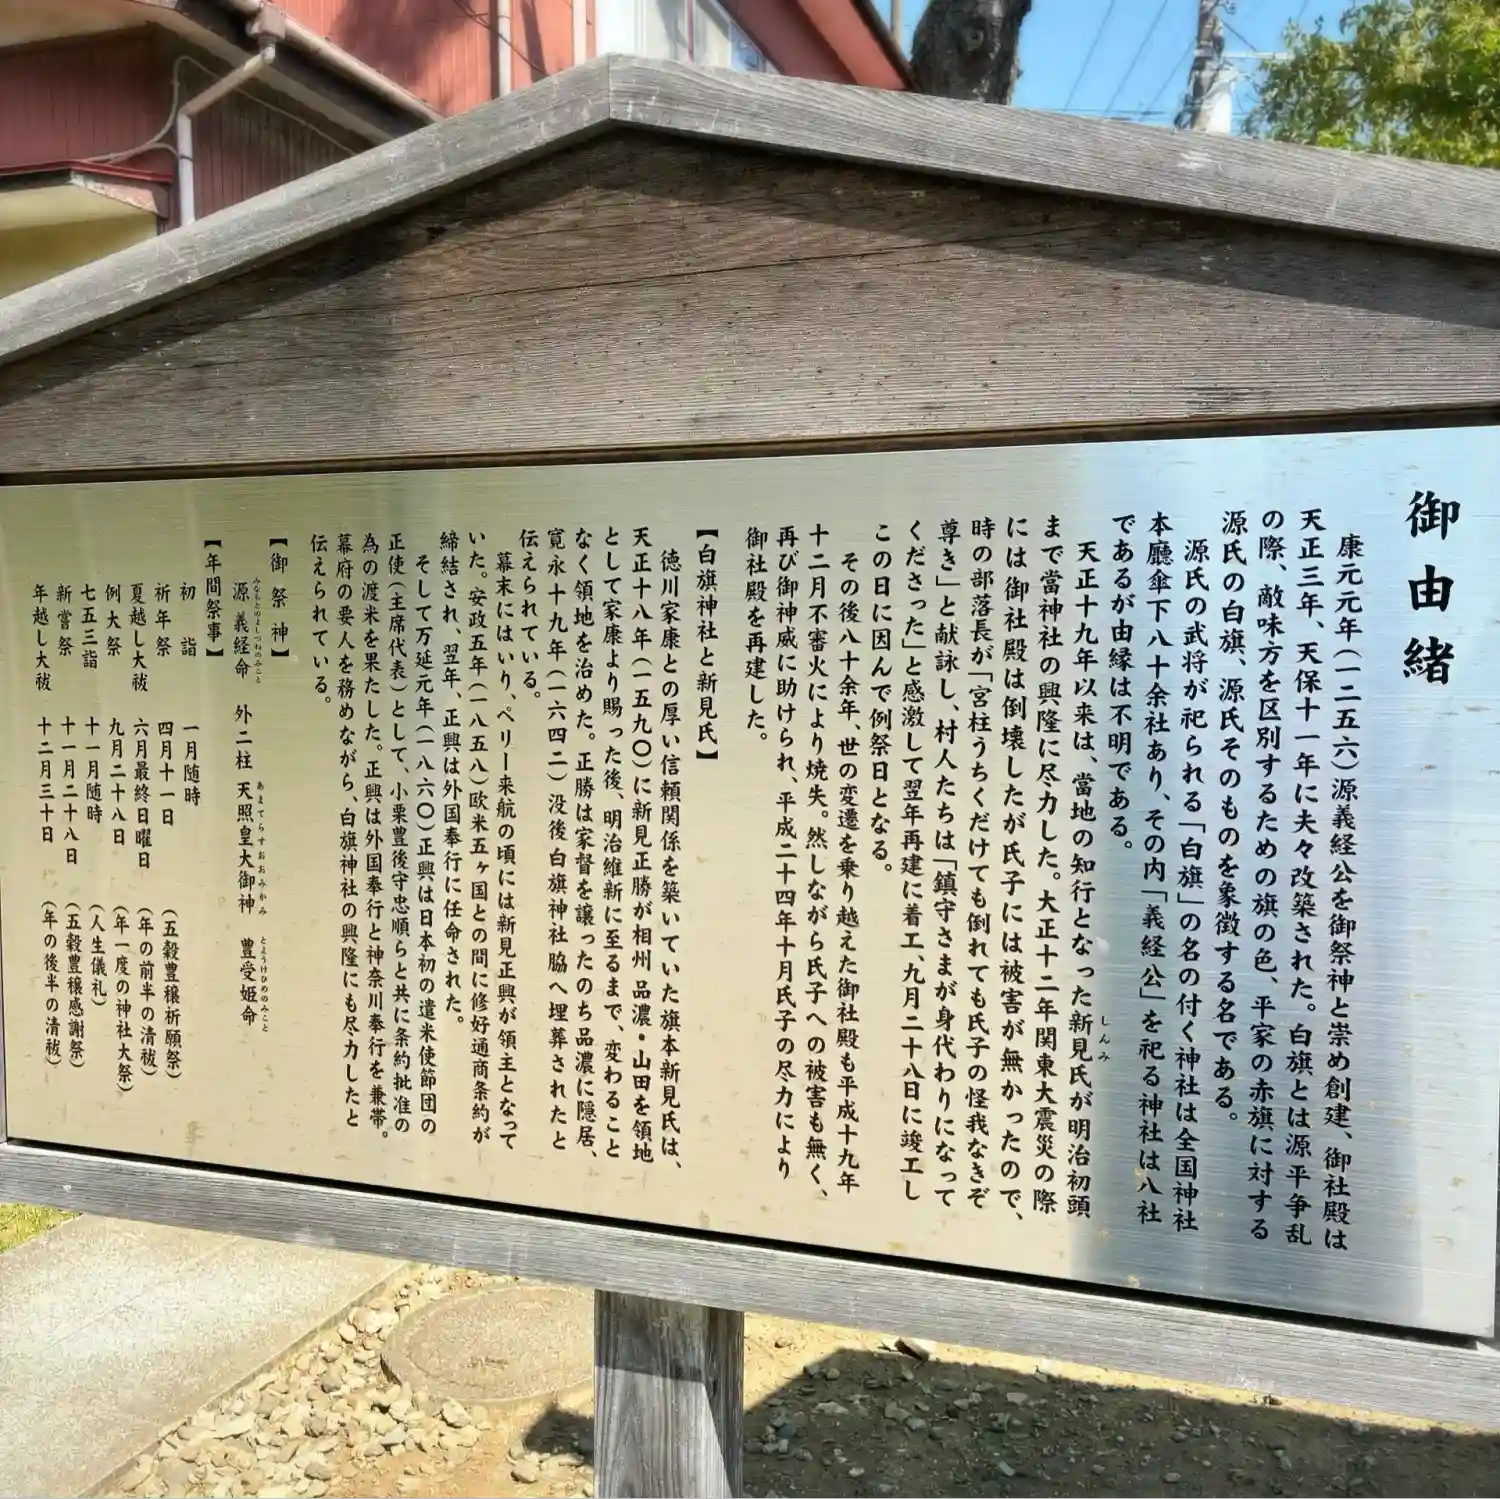 御由緒
康元元年（一二五六）源義経公を御祭神と崇め創建、御社殿は
天正三年、天保十一年に夫々改築された。白旗とは源平争乱
の際、敵味方を区別するための旗の色、平家の赤旗に対する
源氏の白旗、源氏そのものを象徴する名である。
源氏の武将が祀られる「白旗」の名の付く神社は全国神社
本廳傘下八十余社あり、その内「義経公」を祀る神社は八社
であるが由縁は不明である。
天正十九年以来は、當地の知行となった新見氏が明治初頭
しんみ
まで當神社の興隆に尽力した。大正十二年関東大震災の際
には御社殿は倒壊したが氏子には被害が無かったので、
時の部落長が「宮柱うちくだけても倒れても氏子の怪我なきぞ
尊き」と献詠し、村人たちは「鎮守さまが身代わりになって
くださった」と感激して翌年再建に着工、九月二十八日に竣工し
この日に因んで例祭日となる。
その後八十余年、世の変遷を乗り越えた御社殿も平成十九年
十二月不審火により焼失。然しながら氏子への被害も無く、
再び御神威に助けられ、平成二十四年十月氏子の尽力により
御社殿を再建した。
【白旗神社と新見氏】
徳川家康との厚い信頼関係を築いていた旗本新見氏は、
天正十八年（一五九〇）に新見正勝が相州 品濃・山田を領地
として家康より賜った後、明治維新に至るまで、変わること
なく領地を治めた。正勝は家督を譲ったのち品濃に隠居、
寛永十九年（一六四二）没後白旗神社脇へ埋葬されたと
伝えられている。
幕末にはいり、ペリー来航の頃には新見正興が領主となって
いた。安政五年（一八五八）欧米五ヶ国との間に修好通商条約が
締結され、翌年、正興は外国奉行に任命された。
そして万延元年（一八六〇）正興は日本初の遣米使節団の
正使（主席代表）として、小栗豊後守忠順らと共に条約批准の
為の渡米を果たした。正興は外国奉行と神奈川奉行を兼帯。
幕府の要人を務めながら、白旗神社の興隆にも尽力したと
伝えられている。
【御祭神】
源義経命 外二柱 天照皇大御神 豊受姫命
みなもとのよしつねのみこと あまてらすおおみかみ とようけひめのみこと
【年間祭事】
初詣 一月随時
祈年祭 四月十一日 （五穀豊穣祈願祭）
夏越し大祓 六月最終日曜日 （年の前半の清祓）
例大祭 九月二十八日 （年一度の神社大祭）
七五三詣 十一月随時 （人生儀礼）
新嘗祭 十一月二十八日 （五穀豊穣感謝祭）
年越し大祓 十二月三十日 （年の後半の清祓）